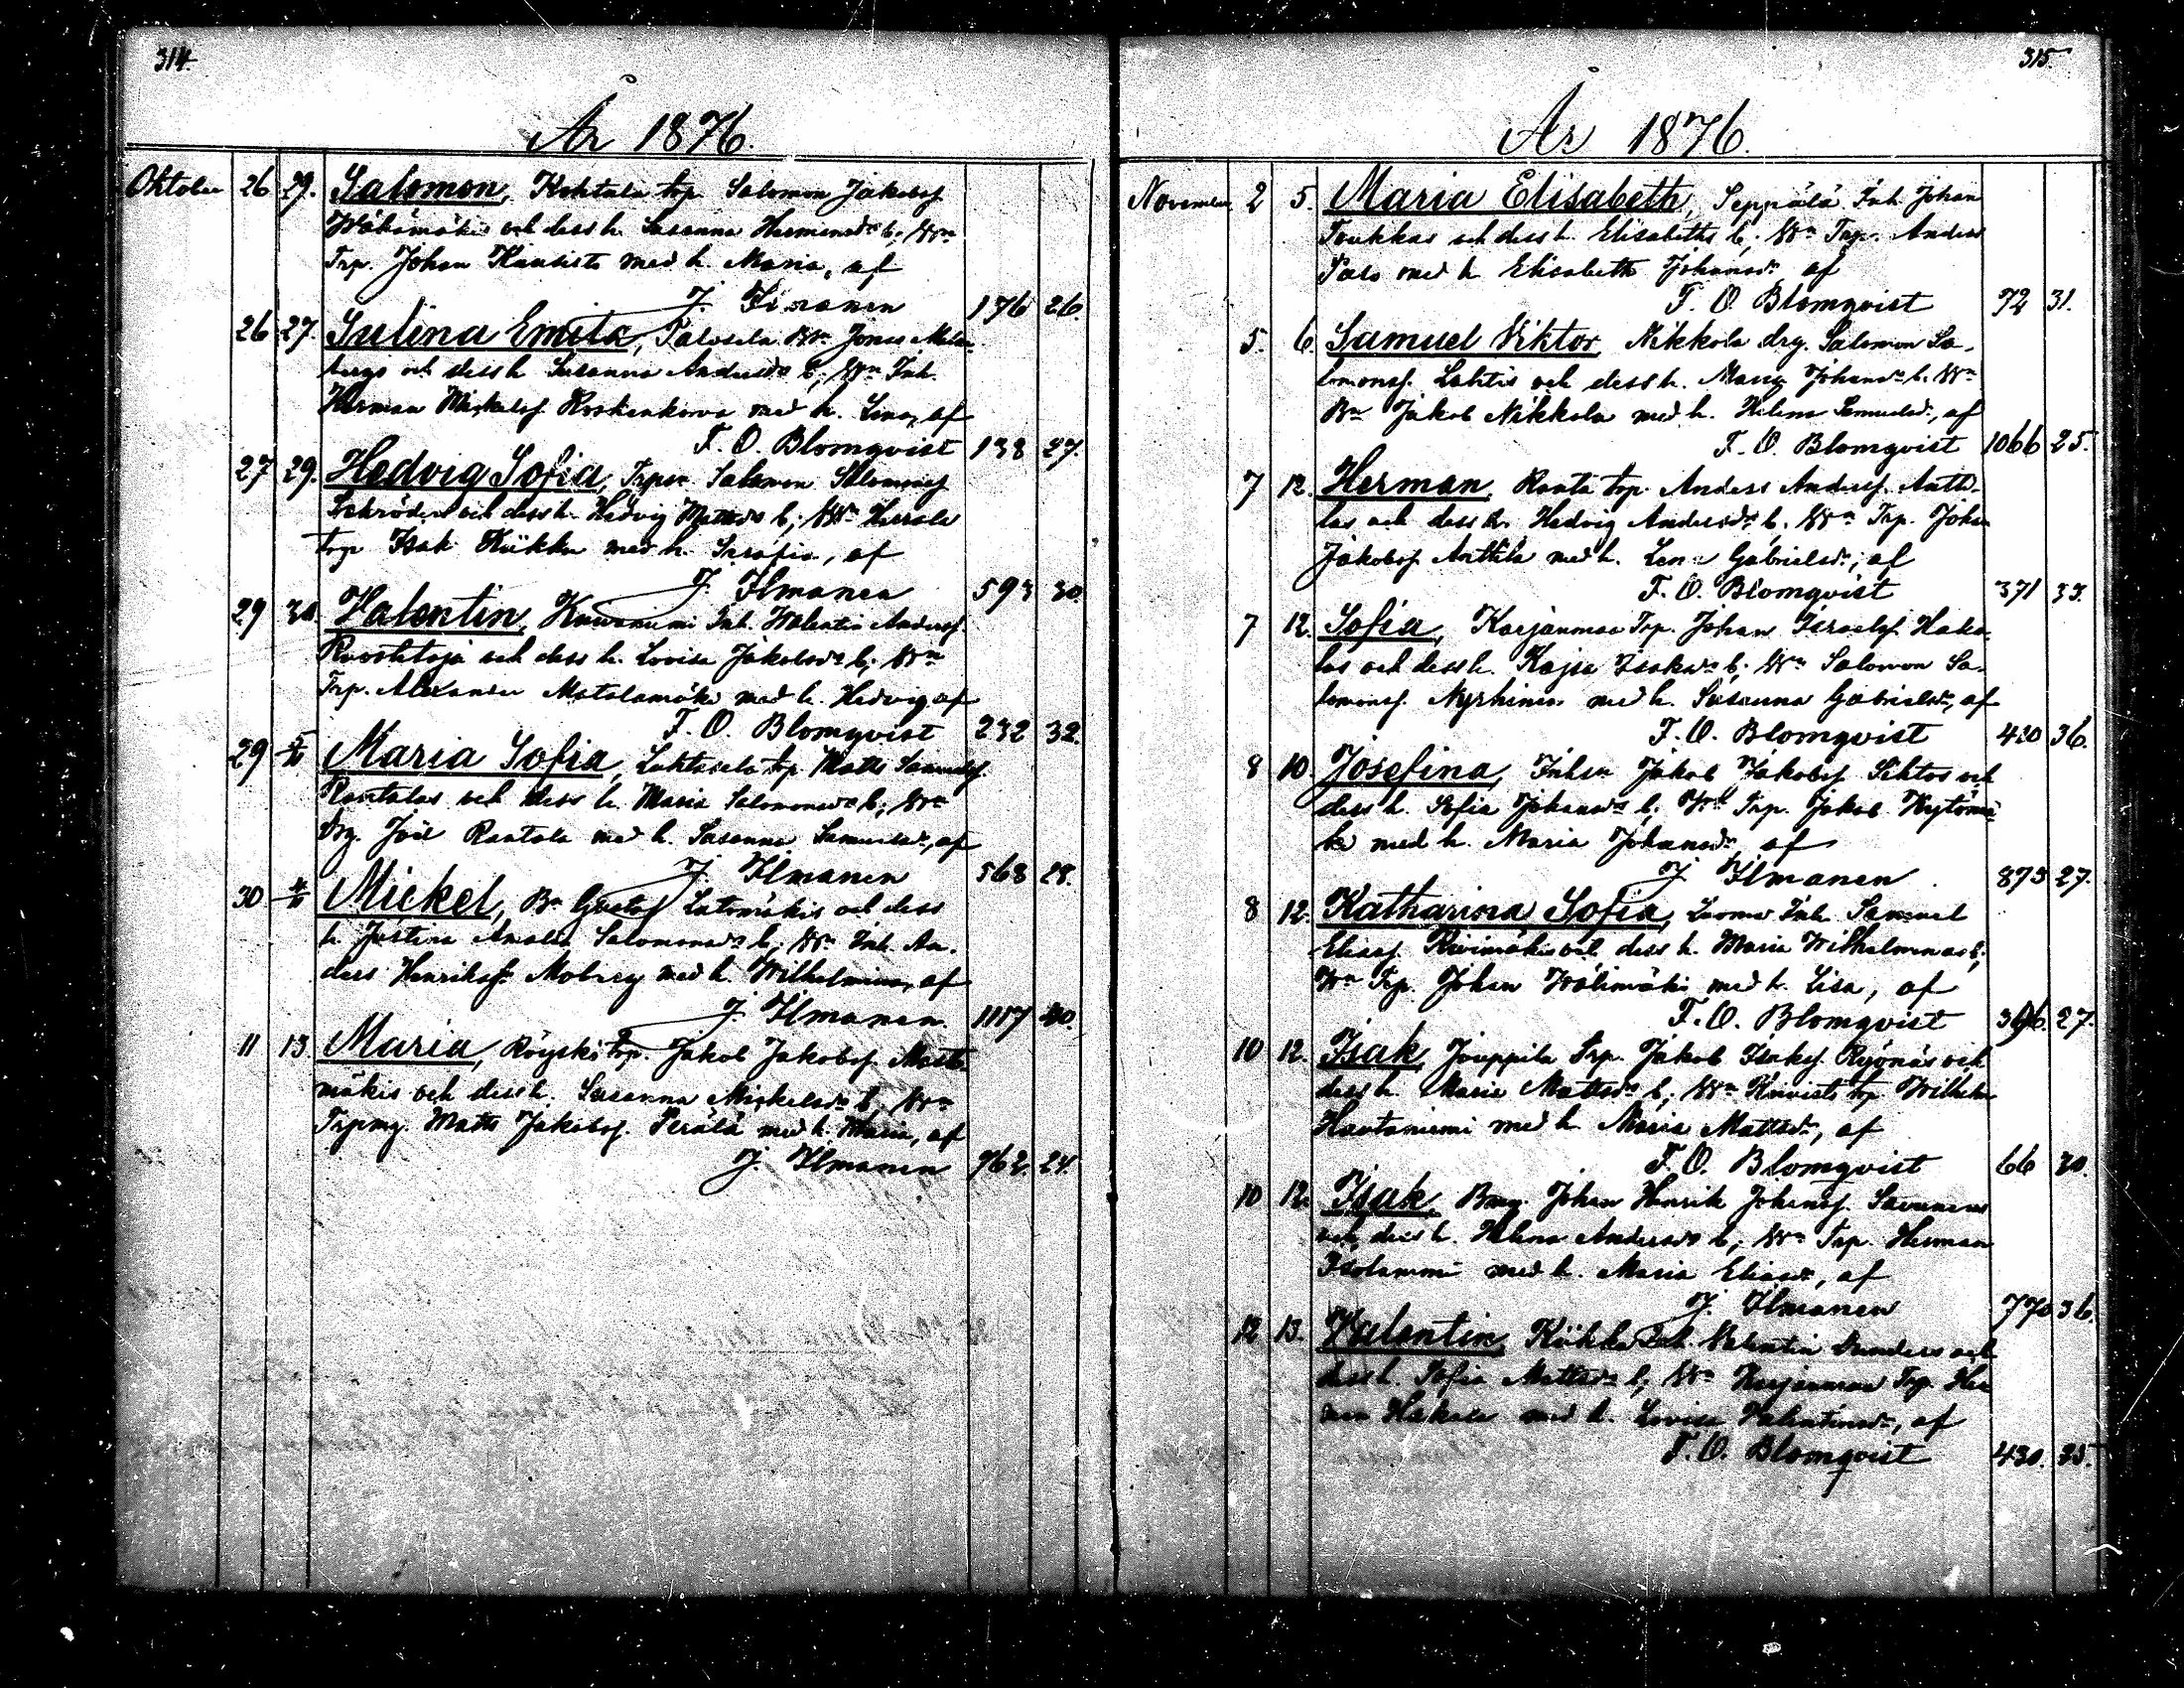 314.
År 1876.
Oktober 26 29. Salomon, Kohtala trp. Salomon Jakobsf.
och dess h. Susanna Hermansdr b; Wn
Trp. Johan Kautisto med h. Maria, af
J. Ilmanen 176 26.
26 27. Sulina Emila, Palosela Wn Jonas Malm-
bergs och dess h. Susanna Andersdr b; Wn Inh.
Herman Mickelsf. Koskenkorva med h. Lina, af
F. O. Blomqvist 138 27.
27 29. Hedvig Sofia, Trpsn Salomon Salomonsf
Schröders och dess h. Hedvig Mattsdr b; Wn Herrala
trp Isak Kiikka med h. Serafia, af
J. Ilmanen 593 30.
29 30. Valentin, Inh. Walentin Andersf.
och dess h. Lovisa Jakobsdr b; Wn
Trp. Alexander Matalamäki med h. Hedvig af
F. O. Blomqvist 232 32.
29 5/11 Maria Sofia, trp. Matts Samuelsf.
Rantalas och dess h. Maria Salomonsdr b; Wn
drg. Joël Rantala med h. Susanna Samuelsdr, af
J. Ilmanen 568 28.
30 Mickel, Bn Gustaf Latomäkis och dess
h. Justina Amalia Salomonsdr b; Wn Inh. An-
ders Henriksf. Moberg med h. Wilhelmina, af
J. Ilmanen. 1117 40.
11 13. Maria, Röyskö trp. Jakob Jakobsf.
mäkis och dess h. Susanna Mickelsdr b; Wn
Trpmg. Matts Jakobsf. Perälä med h. Maria, af
J. Ilmanen 762. 24.
315.
År 1876.
November 2 5. Maria Elisabeth, Seppälä Inh. Johan
och dess h. Elisabeths b; Wn Trp. Anders
med h Elisabeth Johansdr af
F. O. Blomqvist 72 31.
5. 6. Samuel Viktor, Nikkola drg. Salomon Sa-
lomonsf. Lahtis och dess h. Mary Johansdr b. Wn
Bn Jakob Nikkola med h. Helena Samuelsdr, af
F. O. Blomqvist 1066 25.
7 12. Herman, Ranta trp. Anders Andersf. Antti-
las och dess h. Hedvig Andersdr b; Wn Trp. Johan
Jakobsf Anttila med h. Lena Gabrielsdr, af
F. O. Blomqvist 371 33.
7 12. Sofia, Karjanmaa Trp. Johan Israelsf. Haka-
las och dess h. Kajsa Isaksdr b; Wn Salomon Sa-
lomonsf. Nyrhinen med h. Susanna Gabrielsdr, af
F. O. Blomqvist 430 36.
8 10. Josefina, Inhsn Jakob Jakobsf och
dess h. Sofia Johansdr b; Wn Trp. Jakob Kytömä-
ki med h. Maria Johansdr af
J Ilmanen 873 27.
8 12. Katharina Sofia, Luoma Inh. Samuel
Eliasf. och dess h. Maria Wilhelminas b;
Wn Trp. Johan Wälimäki med h. Lisa, af
F. O. Blomqvist 396. 27.
10 12. Isak, Jouppila Trp. Jakob Isaksf. och
dess h. Maria Mattsdr b; Wn Kivistö trp Wilhelm
Hautaniemi med h. Maria Mattsdr, af
F. O. Blomqvist 66 30.
10 12. Isak, Bmg. Johan Henrik Johansf. Savunens
och dess h. Helena Andersdr b; Wn Trp. Herman
Isolammi med h. Maria Eliasdr, af
J. Ilmanen 770 36.
12 13. Valentin, Kiikka Inh. Valentin och
dess h. Sofia Mattsdr b; Wn Karjanmaa Trp Her-
man Hakala med h. Lovisa Valentinsdr, af
F. O. Blomqvist 430. 25.